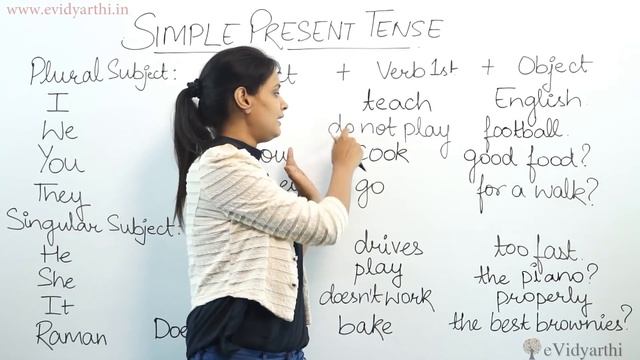 www.evidyarthi.in
SIMPLE PRESENT TENSE
Plural Subject: + Verb 1st + Object
I teach English.
We do not play football.
You cook good food?
They go for a walk?
Singular Subject:
He drives too fast.
She play the piano?
It doesn't work properly
Raman bake the best brownies?
eVidyarthi